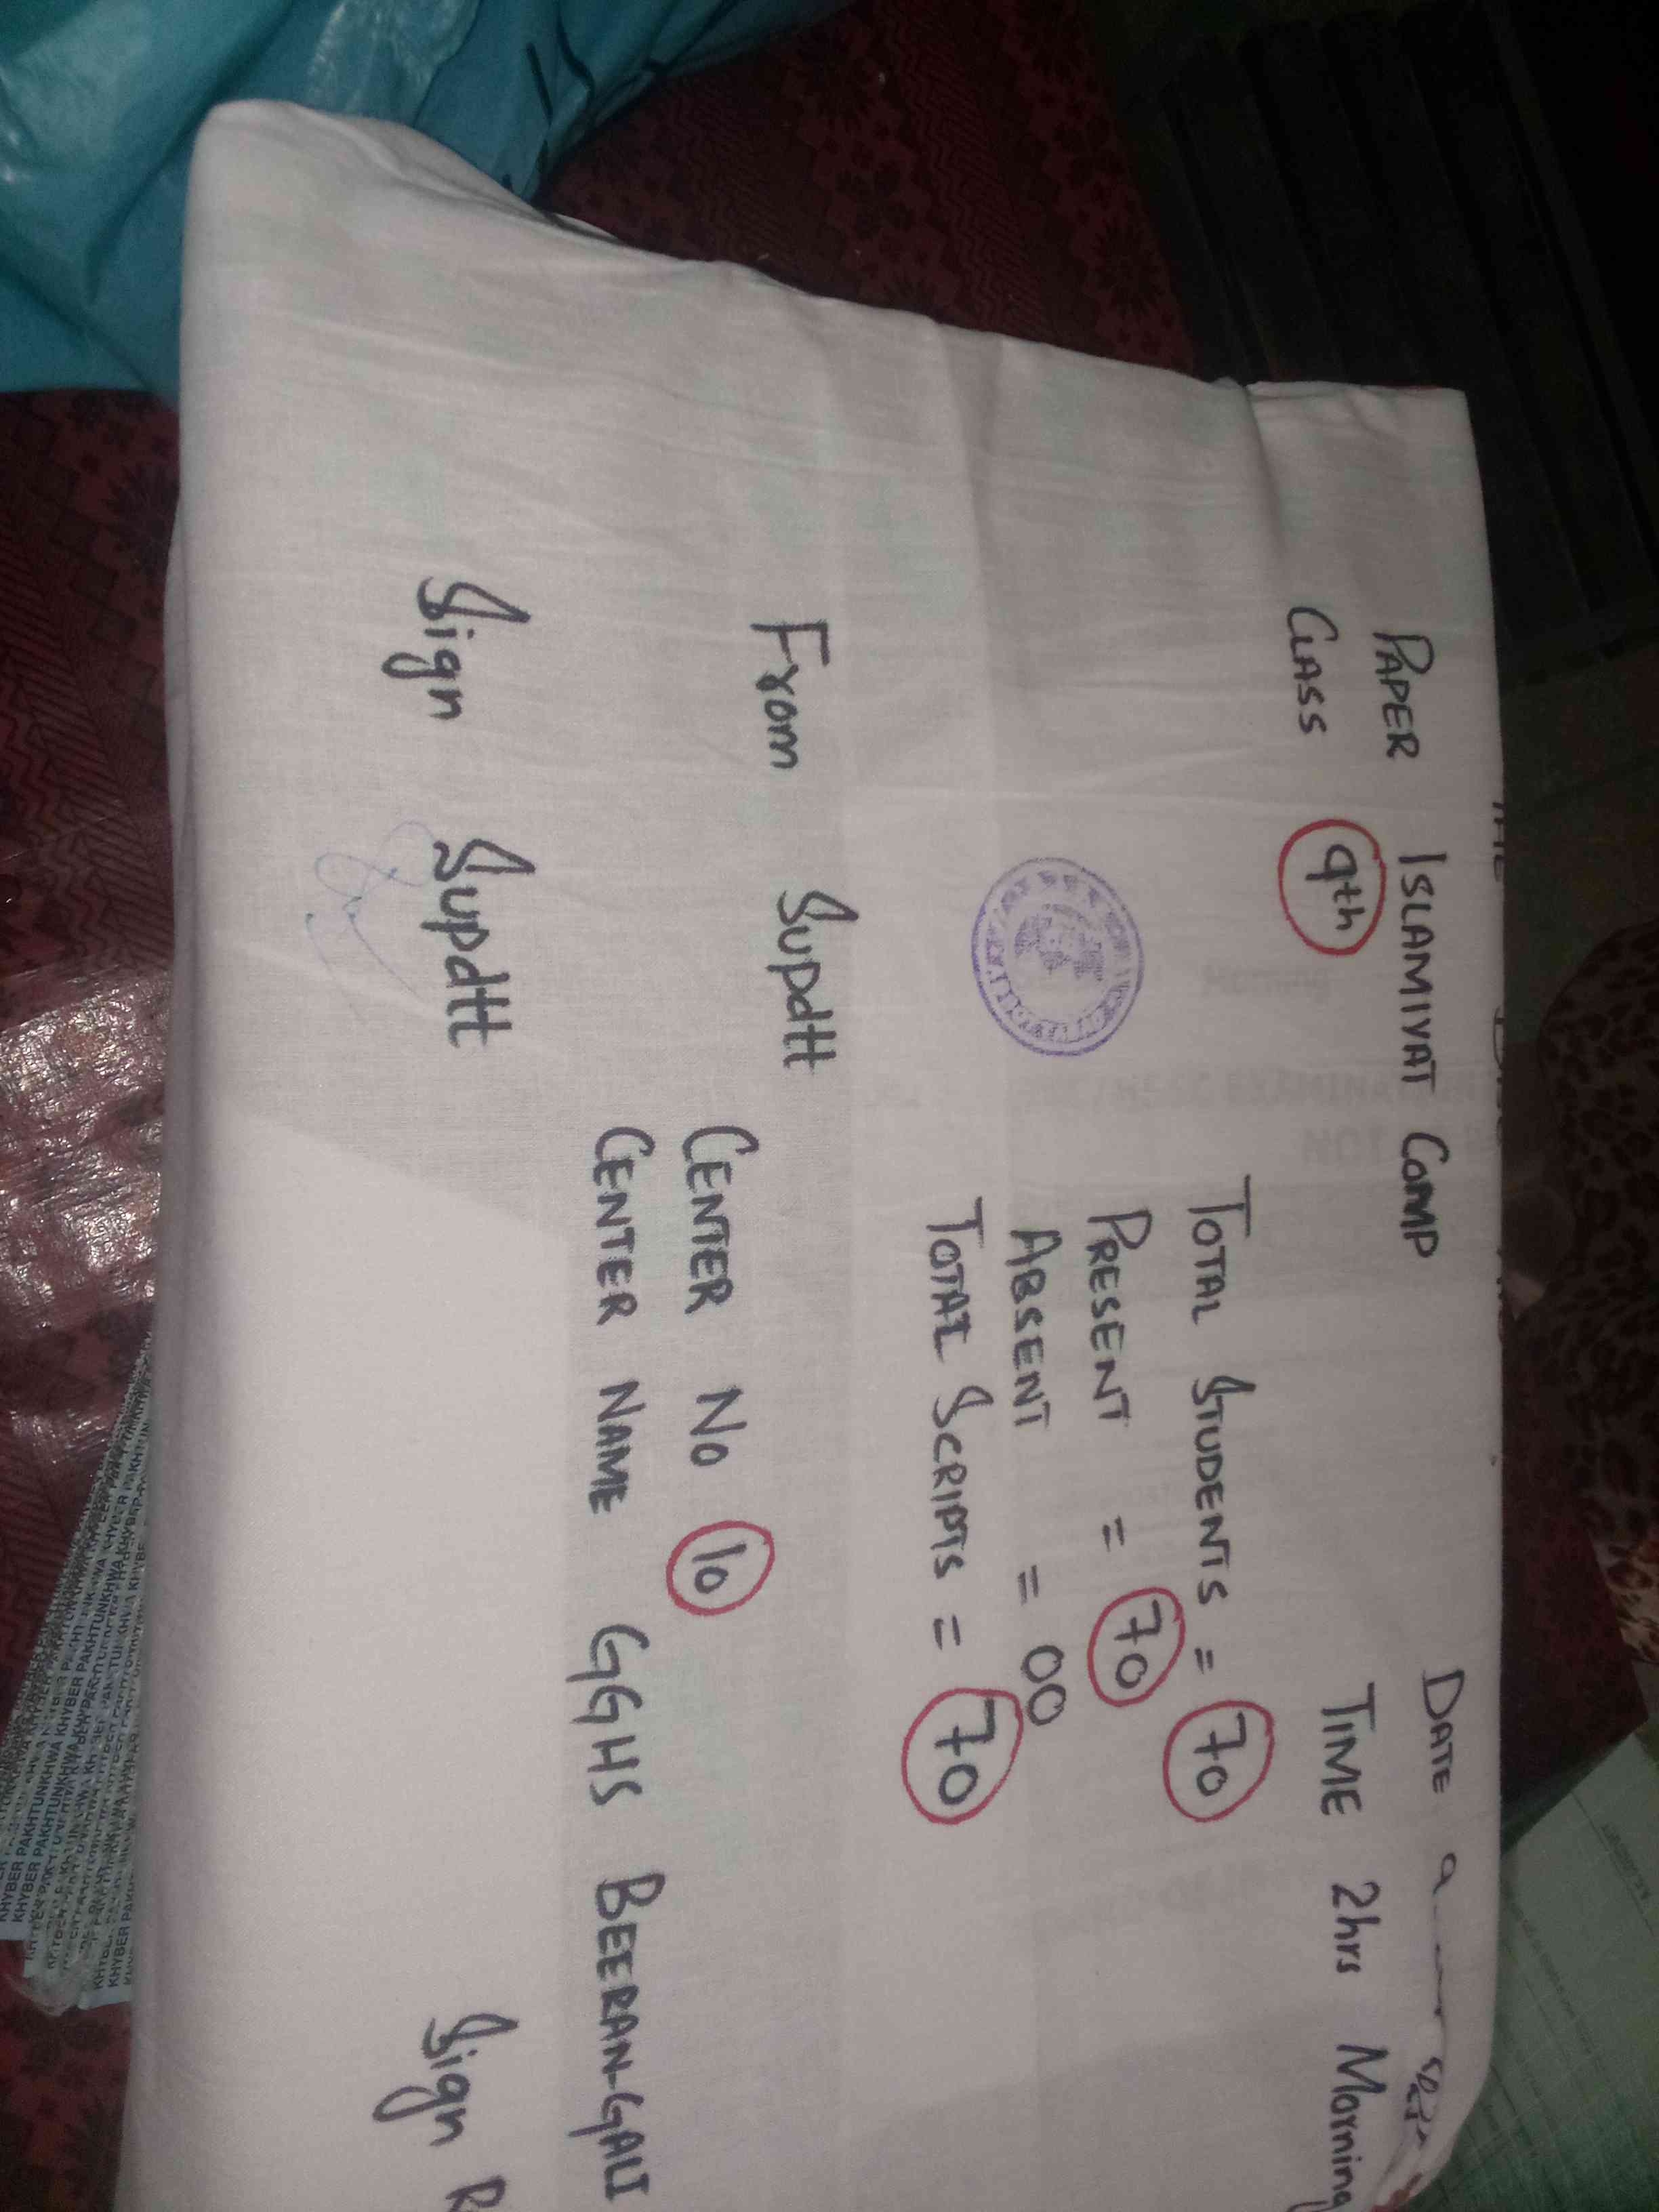 PAPER ISLAMIYAT COMP DATE 9
CLASS 9th TIME 2hrs Morning
TOTAL STUDENTS = 70
PRESENT = 70
ABSENT = 00
TOTAL SCRIPTS = 70
From Supdtt
CENTER NO 10
CENTER NAME GGHS BEERAN-GALI
Sign Supdtt Sign
KHYBER PAKHTUNKHWA
KHYBER PAKHTUNKHWA
KHYBER PAKHTUNKHWA